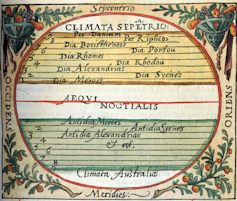 Septentrio
CLIMATA SEPĒTRIO:
Per Daniam Per Ripheos
Dia Boristheneos
Dia Pontou
Dia Rhomes
Dia Rhodou
Dia Alexandrias
Dia Syenes
Dia Meroes
OCCIDENS
ORIENS
AEQUI
NOCTIALIS
Antidia Meroes
Antidia Syenes
Antidia Alexandrias
& est.
Climata Australia
Meridies